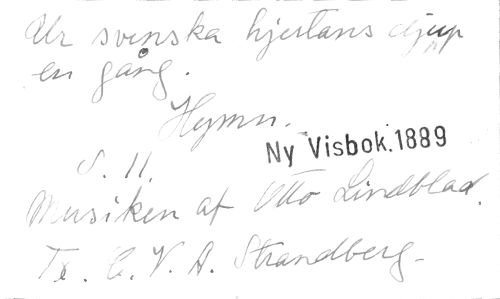 Ur svenska hjertans djup
en gång.
Hymn.
Ny Visbok.1889
S. 11.
Musiken af Otto Lindblad.
Tx. C. V. A. Strandberg.